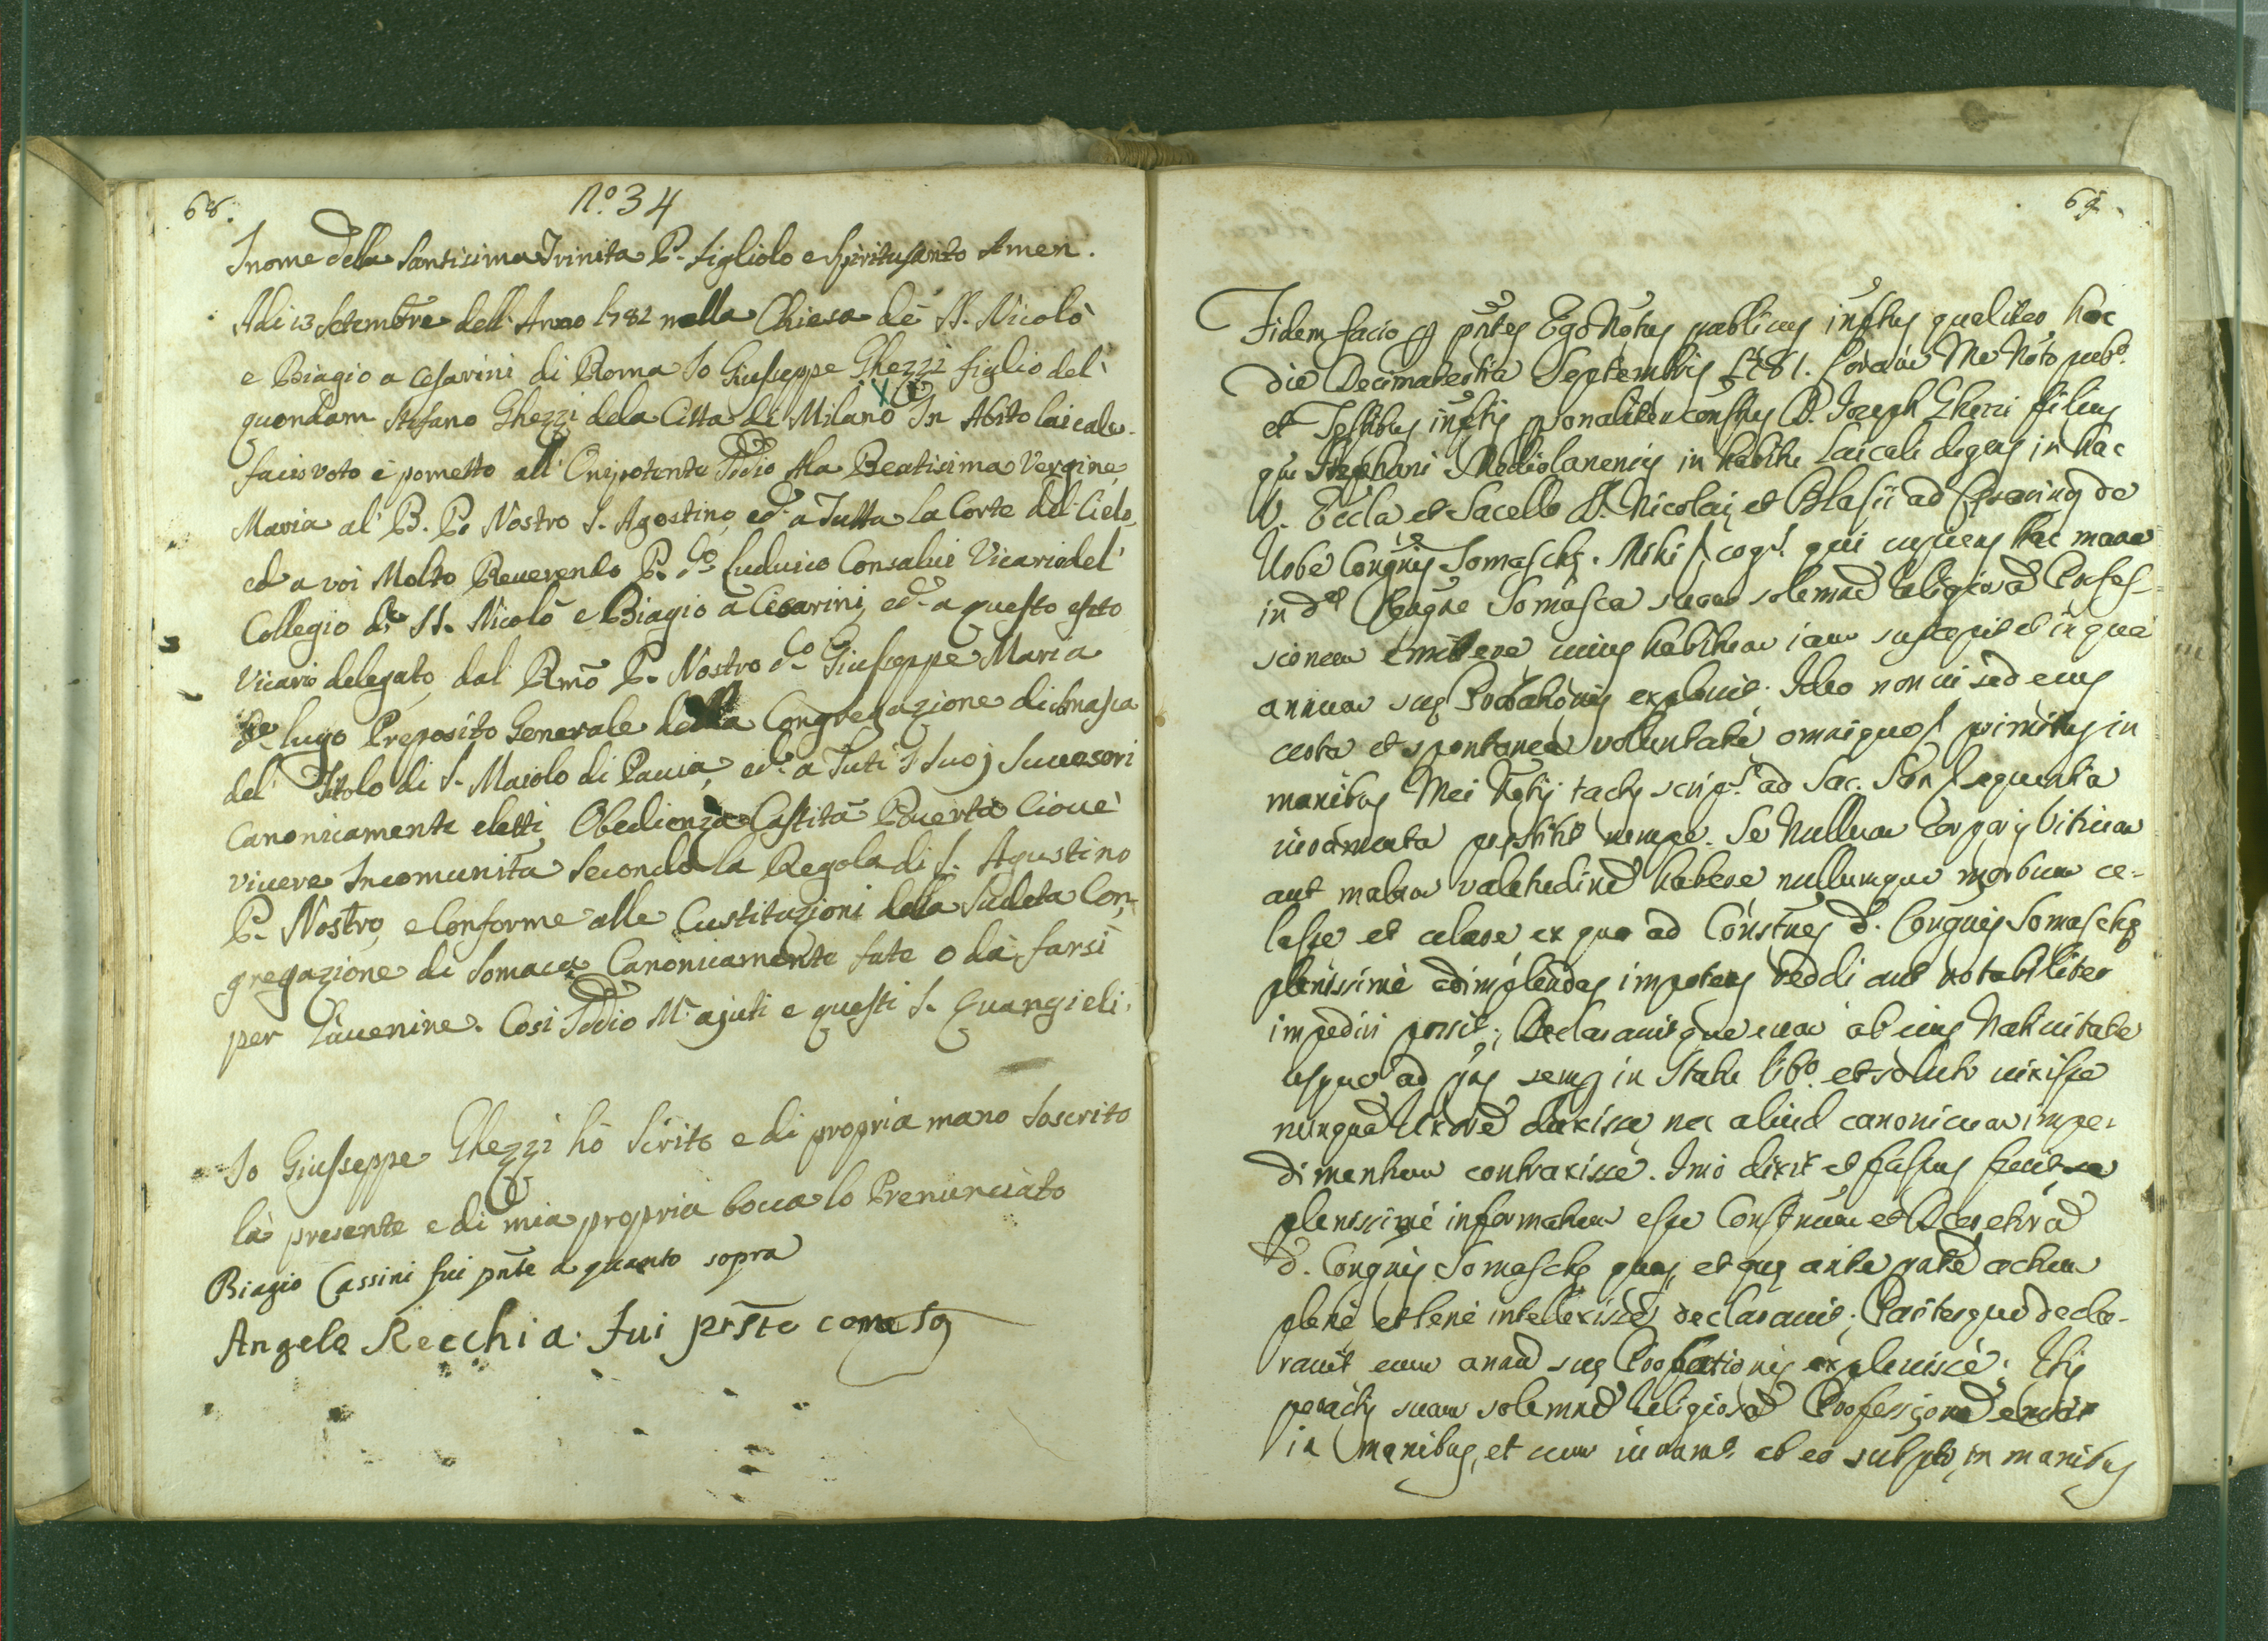 68.
N.º 34
Inome della Santisima Trinita P. figliolo e Spiritusanto Amen.
Adi 13 Setembre dell'Anno 1782 nella Chiesa dè SS. Nicolò
e Biagio a Cesarini di Roma Io Giusseppe Ghezzi figlio del'
quondam Stefano Ghezzi dela Citta di Milano In Abito laicale
facio voto è prometto all' Onipotente Iddio Ala Beatisima Vergine
Maria al' B. P. Nostro S. Agostino, ed a Tutta la Corte del Cielo,
ed a voi Molto Reuerendo P. Dº Luduico Consalui Vicario del'
Collegio di SS. Nicolò e Biagio à Cesarini, ed a questo efeto
Vicario delegato dal Rmõ P. Nostro Dº Giusseppe Maria
de Lugo Preposito Generale della Congregazione di Somasca
del' Titolo di S. Maiolo di Pauia, ed a Tuti i Suoj Sucesori
Canonicamente eletti, Obedienza Castità Pouertà Cioue'
viuere Incomunità Secondo la Regola di S. Agustino
P. Nostro, e Conforme alle Custituzioni della Sudeta Con-
gregazione di Somaca Canonicamente fate o dà farsi
per Làuenire. Cosi Iddio M' ajuti e questi S. Euangieli.
Io Giusseppe Ghezzi hò Scrito e di propria mano Soscrito
là presente e di mia propria bocca lo Prenunciàto
Biagio Cassini fui pñte a quanto sopra
Angelo Recchia. Fui prste come sa
69.
Fidem facio p pñtes Ego Notus publicus inftus qualiter hac
die Decimatertia Septembris 1781. Coram Me Notº pubº
et Testibus inftis psonaliter constus D. Joseph Ghezzi filius
qm Stephani Mediolanensis in habitu Laicali degens in hac
V. Eccla et Sacello SS. Nicolai, et Blasii ad Cesarinos de
Urbe Congnis Somaschę. Mihi cogs. qui cupiens hac mane
in da Congne Somasca suam solemnē Religiosā Profes-
sionem emittere cuius habitum iam suscepit et in qua
annum suę Probationis expleuit. Ideo non vi sed eius
certa et spontanea voluntate omnique primitus in
manibus Mei Notij tactis scripis ad Sac. sequentia
iuramenta prestitit nempe. Se Nullum Corporis Vitium
aut malam valetudinē habere nullumque morbum ce-
lasse et celare ex quo ad Constnes d. Congnis Somaschę
plenissimè adimplendas impotens reddi aut notabiliter
impediri possit; Declarauitque eum ab eius Natiuitate
usque ad pns semp in Statu libº et soluto uixisse
nunquā Uxorē duxisse nec aliud canonicum impe-
dimentum contraxisse. Imò dixit et fassus fuit se
plenissimè informatum esse Constnum et Decretorū
d. Congnis Somaschę quas, et quę ante pntē actum
plenè et benè intellexisse declarauit; Pariterque decla-
rauit eum annū suę Probationis expleuisse: His
peractis suam solemnē Religiosā Professionē emisit
in manibus, et cum iuramº ab eo subpto, in manibus